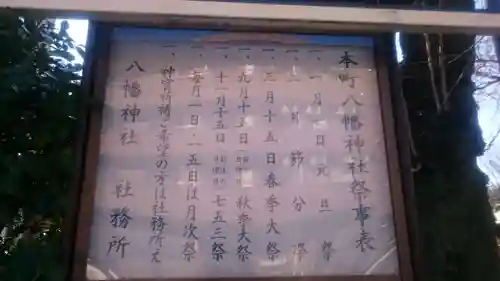 本町八幡神社祭事表
一、一月一日元旦祭
一、二月節分祭
一、三月十五日春季大祭
一、九月十五日秋季大祭
一、十一月十五日七五三祭
一、毎月一日十五日は月次祭
一、神宮祈祷ご希望の方は社務所え
八幡神社 社務所